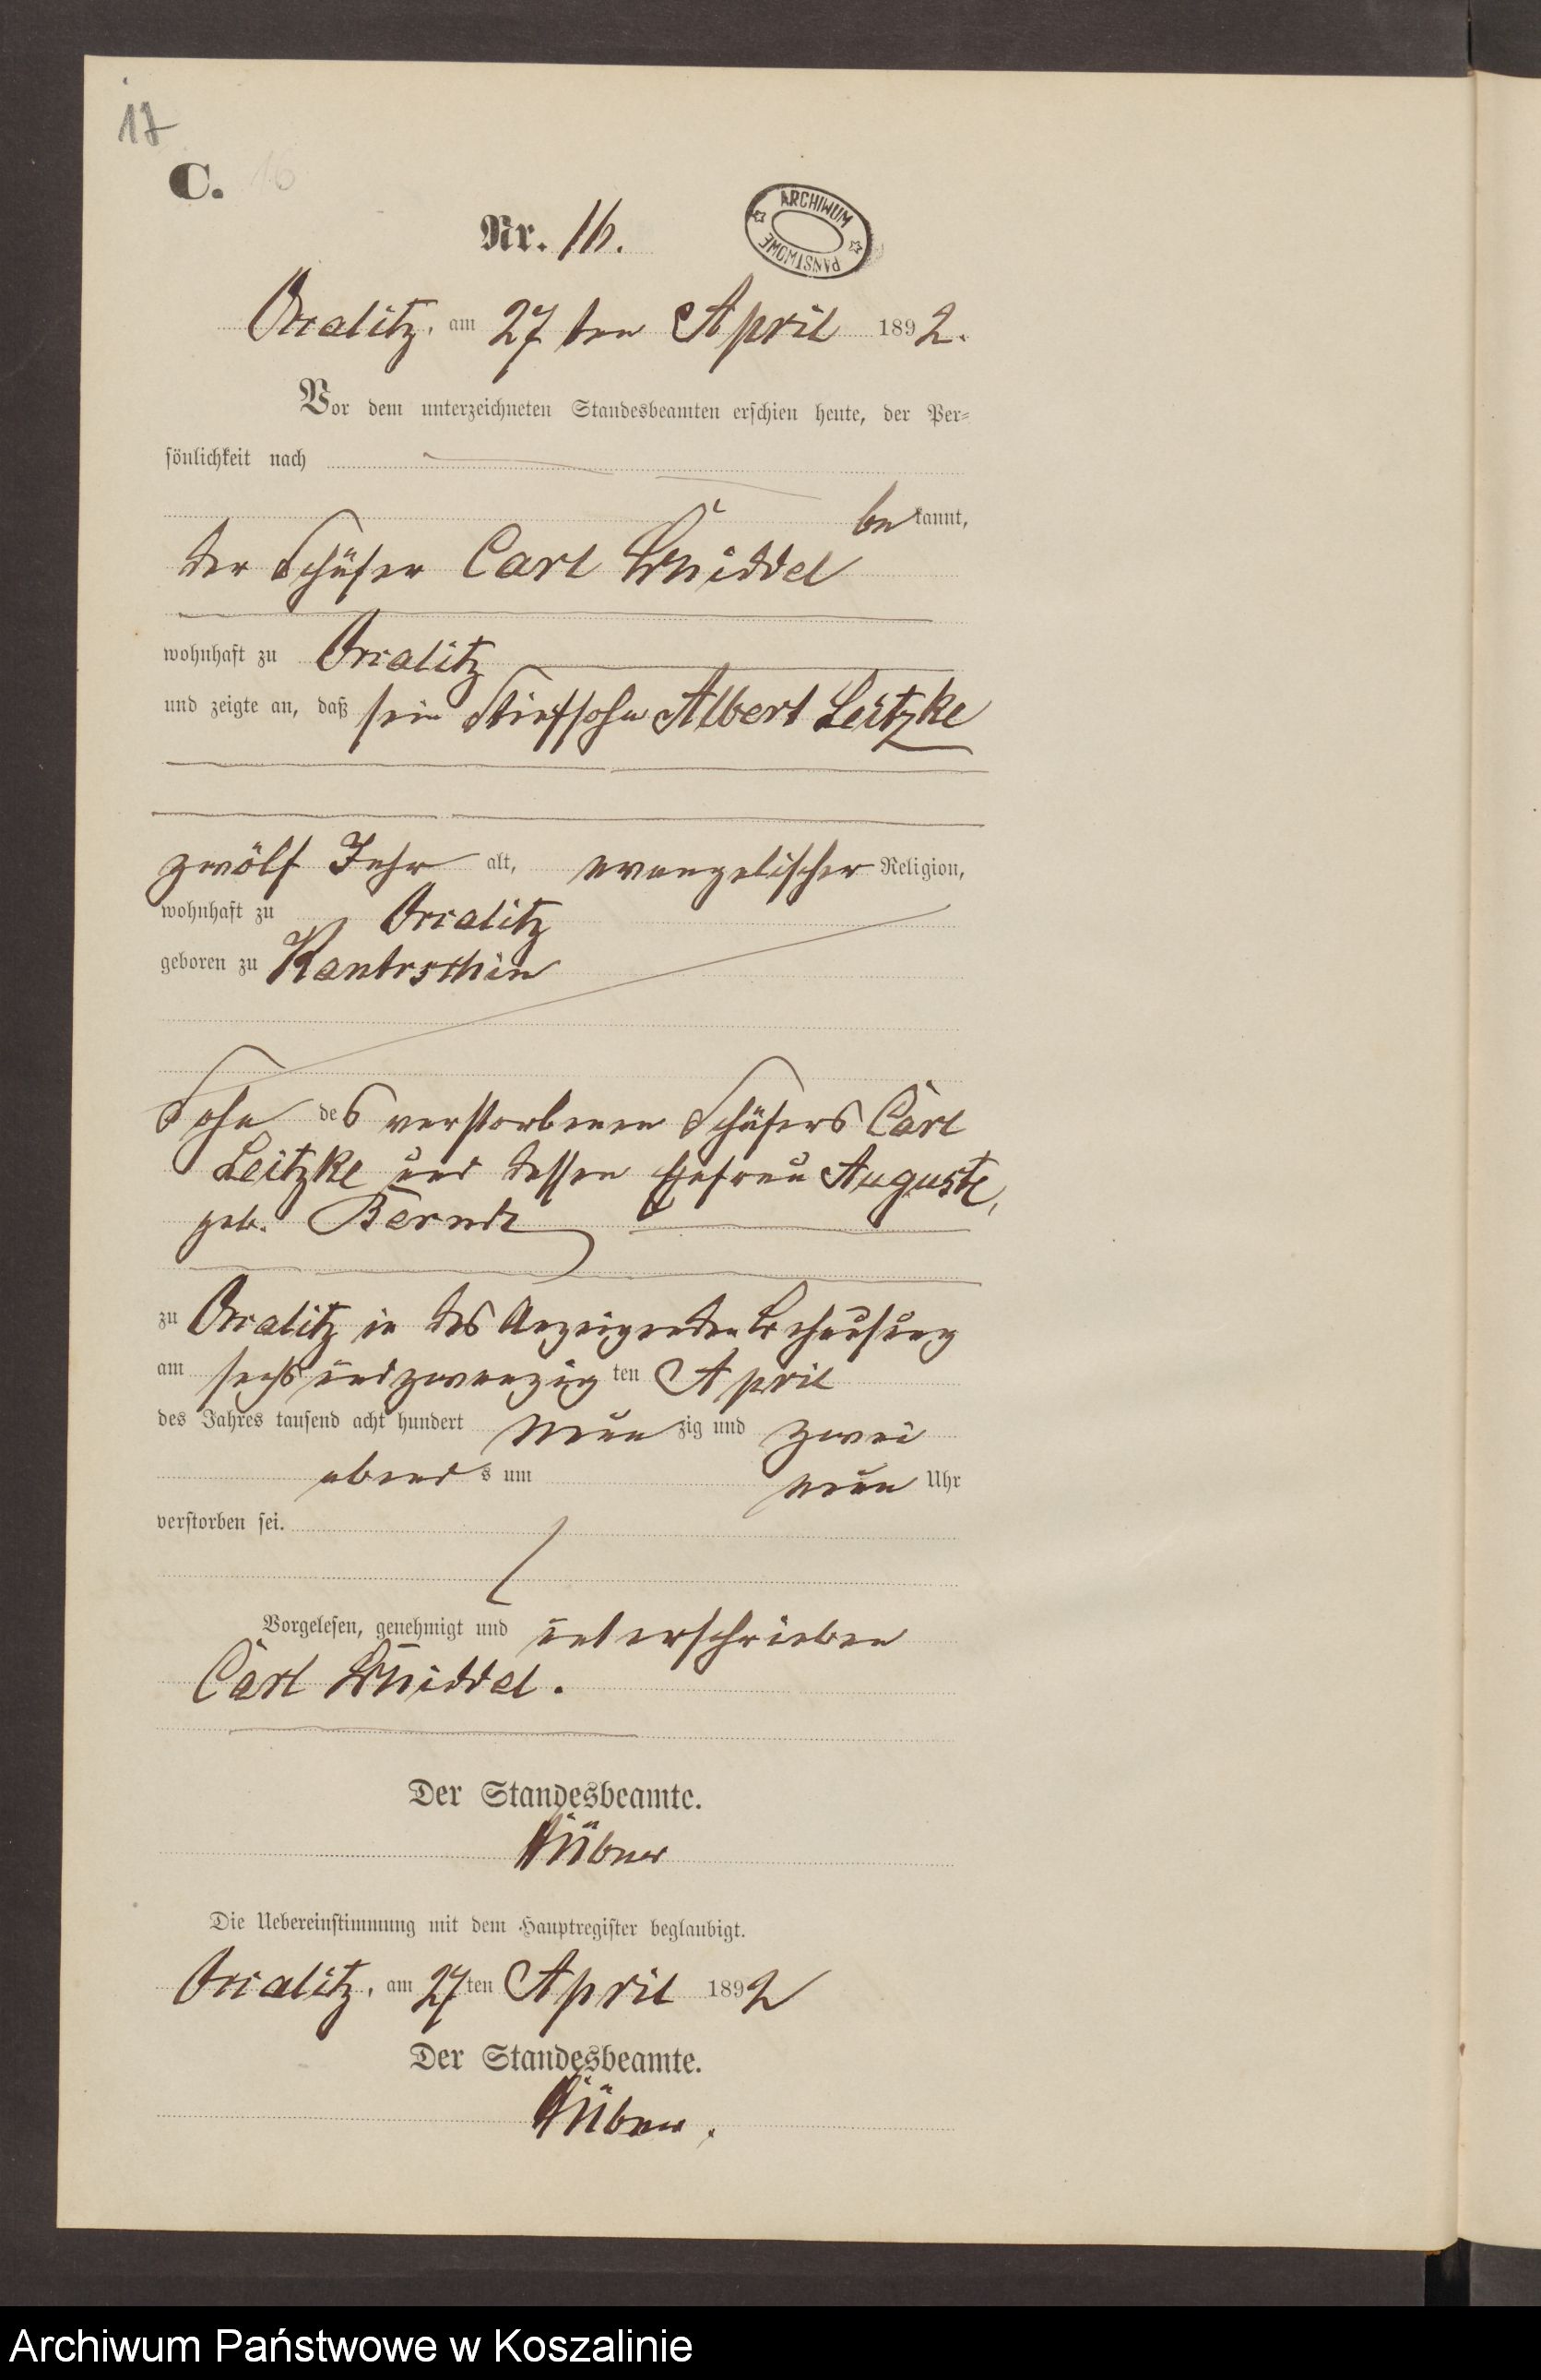 17
C. 16
Nr. 16.
ARCHIWUM PAŃSTWOWE
Occalitz, am 27 ten April 1892.
Vor dem unterzeichneten Standesbeamten erschien heute, der Per-
sönlichkeit nach
bekannt,
der Schäfer Carl
wohnhaft zu Occalitz
und zeigte an, daß sein Stiefsohn Albert Leitzke
zwölf Jahr alt, evangelischer Religion,
wohnhaft zu Occalitz
geboren zu
Sohn des verstorbenen Schäfers Carl
Leitzke und dessen Ehefrau Auguste,
geb. Berndt
zu Occalitz in des Anzeigenden Behausung
am sechsundzwanzigten April
des Jahres tausend acht hundert neunzig und zwei
abends um neun Uhr
verstorben sei.
Vorgelesen, genehmigt und unterschrieben
Carl
Der Standesbeamte.
Hübner
Die Uebereinstimmung mit dem Hauptregister beglaubigt.
Occalitz, am 27ten April 1892
Der Standesbeamte.
Hübner.
Archiwum Państwowe w Koszalinie